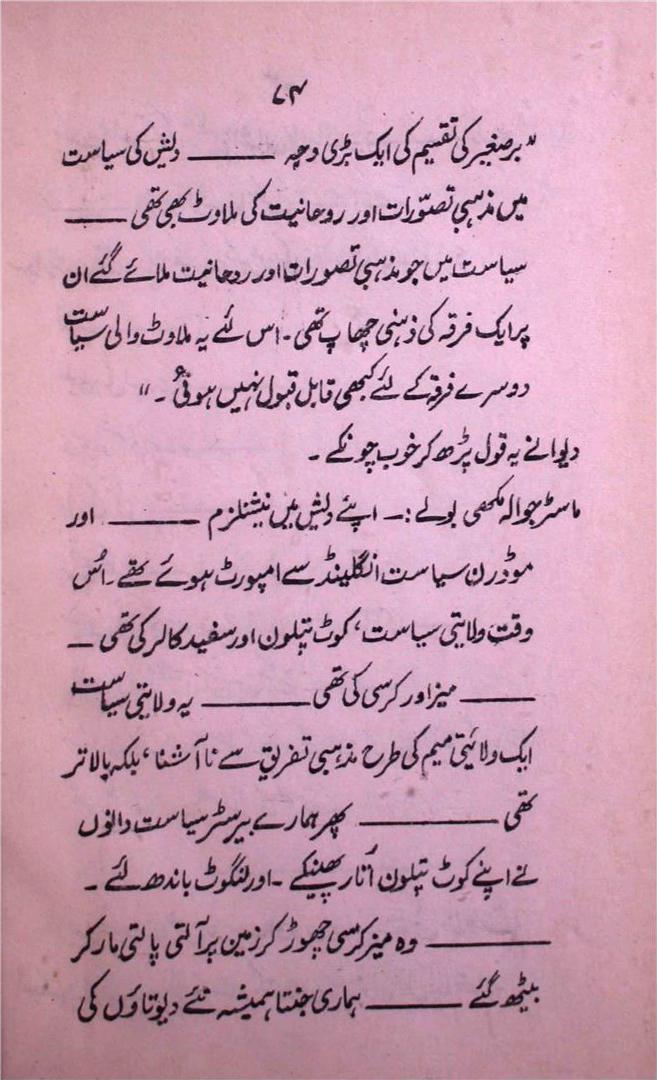 ۷۴
”برصغیر کی تقسیم کی ایک بڑی وجہ ——— دلیش کی سیاست
میں مذہبی تصوّرات اور روحانیت کی ملاوٹ بھی تھی ———
سیاست میں جو مذہبی تصورات اور روحانیت ملائے گئے ان
پر ایک فرقہ کی ذہنی چھاپ تھی ۔ اس لئے یہ ملاوٹ والی سیاست
دوسرے فرقے کے لئے کبھی قابل قبول نہیں ہوئی ۔ “
دیوانے یہ قول پڑھ کر خوب چونکے ۔
ماسٹر جوالہ مکھی بولے :۔ اپنے دلیش میں نیشنلزم ——— اور
موڈرن سیاست انگلینڈ سے امپورٹ ہوئے تھے ۔ اُس
وقت ولایتی سیاست ، کوٹ پتلون اور سفید کالر کی تھی ۔
——— میز اور کرسی کی تھی ——— یہ ولایتی سیاست
ایک ولائیتی میم کی طرح مذہبی تفریق سے ناآشنا ، بلکہ بالاتر
تھی ——— پھر ہمارے بیرسٹر سیاست دانوں
نے اپنے کوٹ پتلون اُتار پھینکے ۔ اور لنگوٹ باندھ لئے ۔
——— وہ میز کرسی چھوڑ کر زمین پر آلتی پالتی مار کر
بیٹھ گئے ——— ہماری جنتا ہمیشہ نئے دیوتاؤں کی